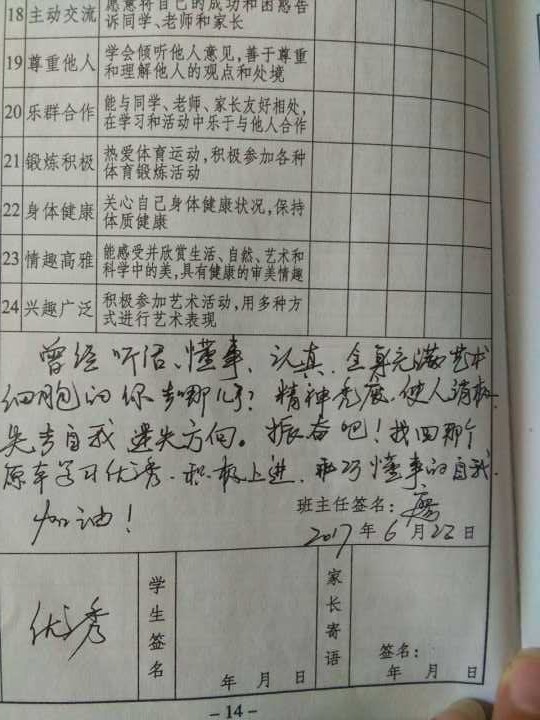 18 主动交流 愿意将自己的成功和困惑告
诉同学、老师和家长
19 尊重他人 学会倾听他人意见,善于尊重
和理解他人的观点和处境
20 乐群合作 能与同学、老师、家长友好相处,
在学习和活动中乐于与他人合作
21 锻炼积极 热爱体育运动,积极参加各种
体育锻炼活动
22 身体健康 关心自己身体健康状况,保持
体质健康
23 情趣高雅 能感受并欣赏生活、自然、艺术和
科学中的美,具有健康的审美情趣
24 兴趣广泛 积极参加艺术活动,用多种方
式进行艺术表现
曾经听话、懂事、认真、全身充满艺术
细胞的你去哪儿了?精神秃废.使人消极.
失去自我 迷失方向。振奋吧!找回那个
原车学习优秀.积极上进. 懂事的自我.
加油!
班主任签名:
2017年6月22日
优秀
学生签名
年 月 日
家长寄语
签名:
年 月 日
-14-